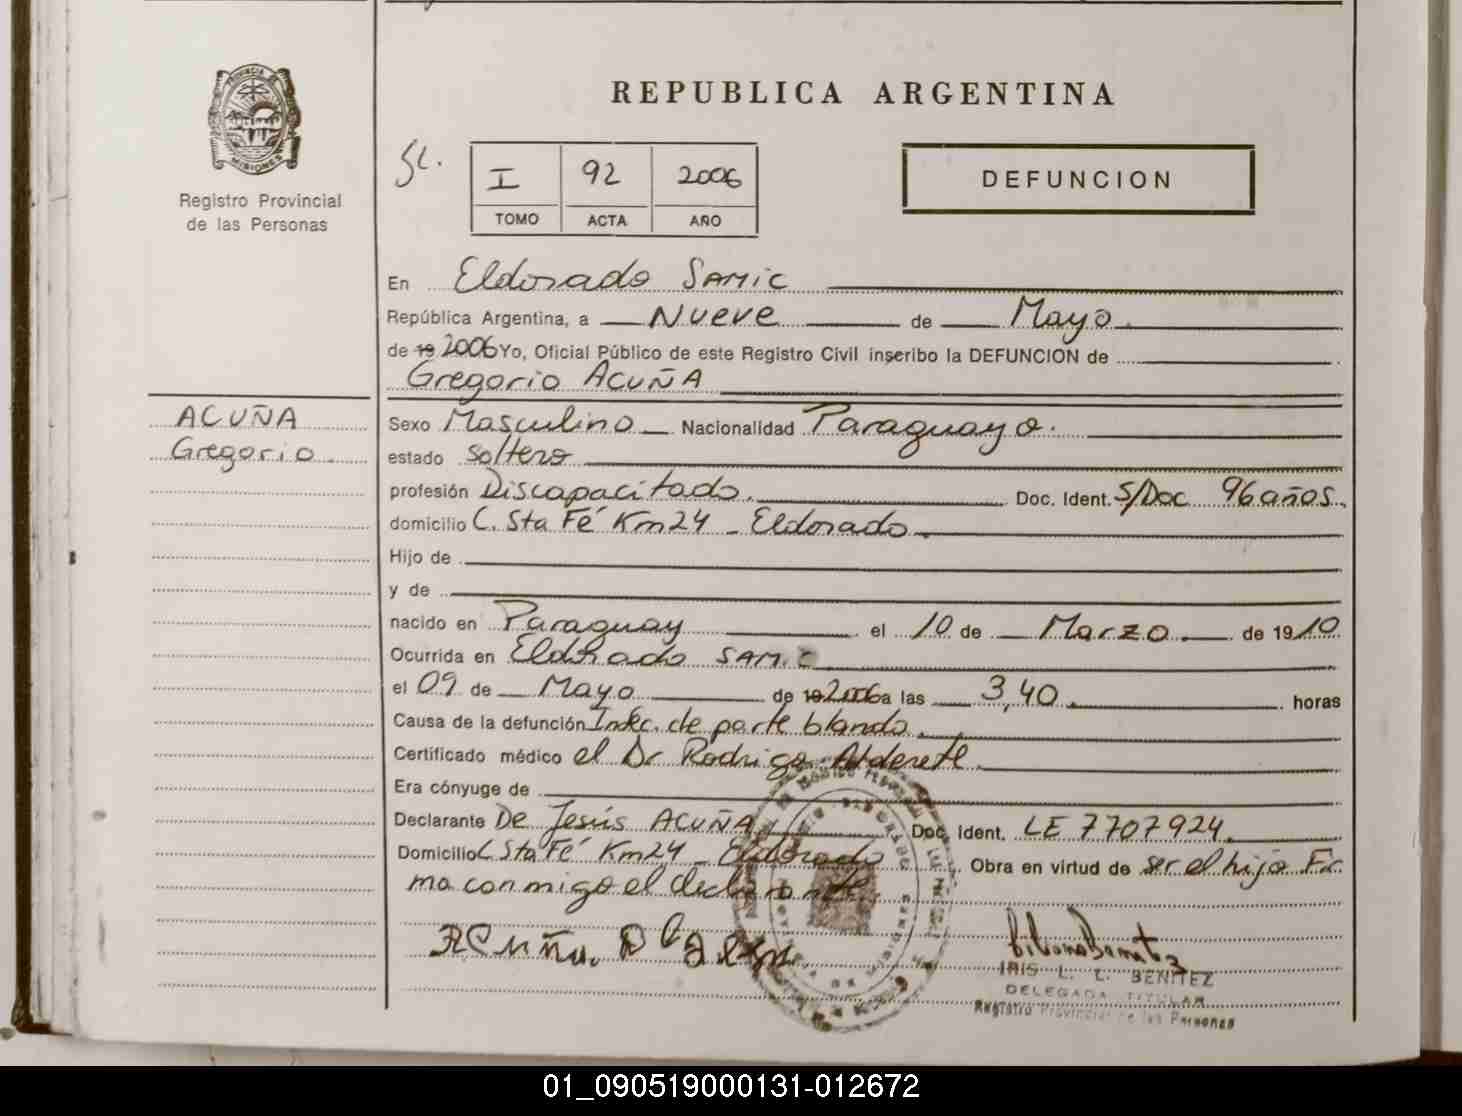 PROVINCIA DE
MISIONES
Registro Provincial
de las Personas
REPUBLICA ARGENTINA
I 92 2006
TOMO ACTA AÑO
DEFUNCION
En Eldorado SAMIC
República Argentina, a Nueve de Mayo
de 19 2006 Yo, Oficial Público de este Registro Civil inscribo la DEFUNCION de
Gregorio ACUÑA
ACUÑA
Gregorio
Sexo Masculino Nacionalidad Paraguayo.
estado soltero
profesión Discapacitado. Doc. Ident. S/Doc 96 años.
domicilio C. Sta Fé Km 24 - Eldorado.
Hijo de
y de
nacido en Paraguay el 10 de Marzo de 1910
Ocurrida en Eldorado SAMIC
el 09 de Mayo de 19 2006 a las 3,40 horas
Causa de la defunción Infec. de parte blanda.
Certificado médico el Dr Rodrigo Alderete
Era cónyuge de
Declarante De Jesús ACUÑA Doc. Ident. LE 7707924.
Domicilio C Sta Fé Km 24 - Eldorado Obra en virtud de ser el hijo Fir
ma conmigo el declarante.
Acuña
IRIS L. L. BENITEZ
DELEGADA TITULAR
Registro Provincial de las Personas
01_090519000131-012672